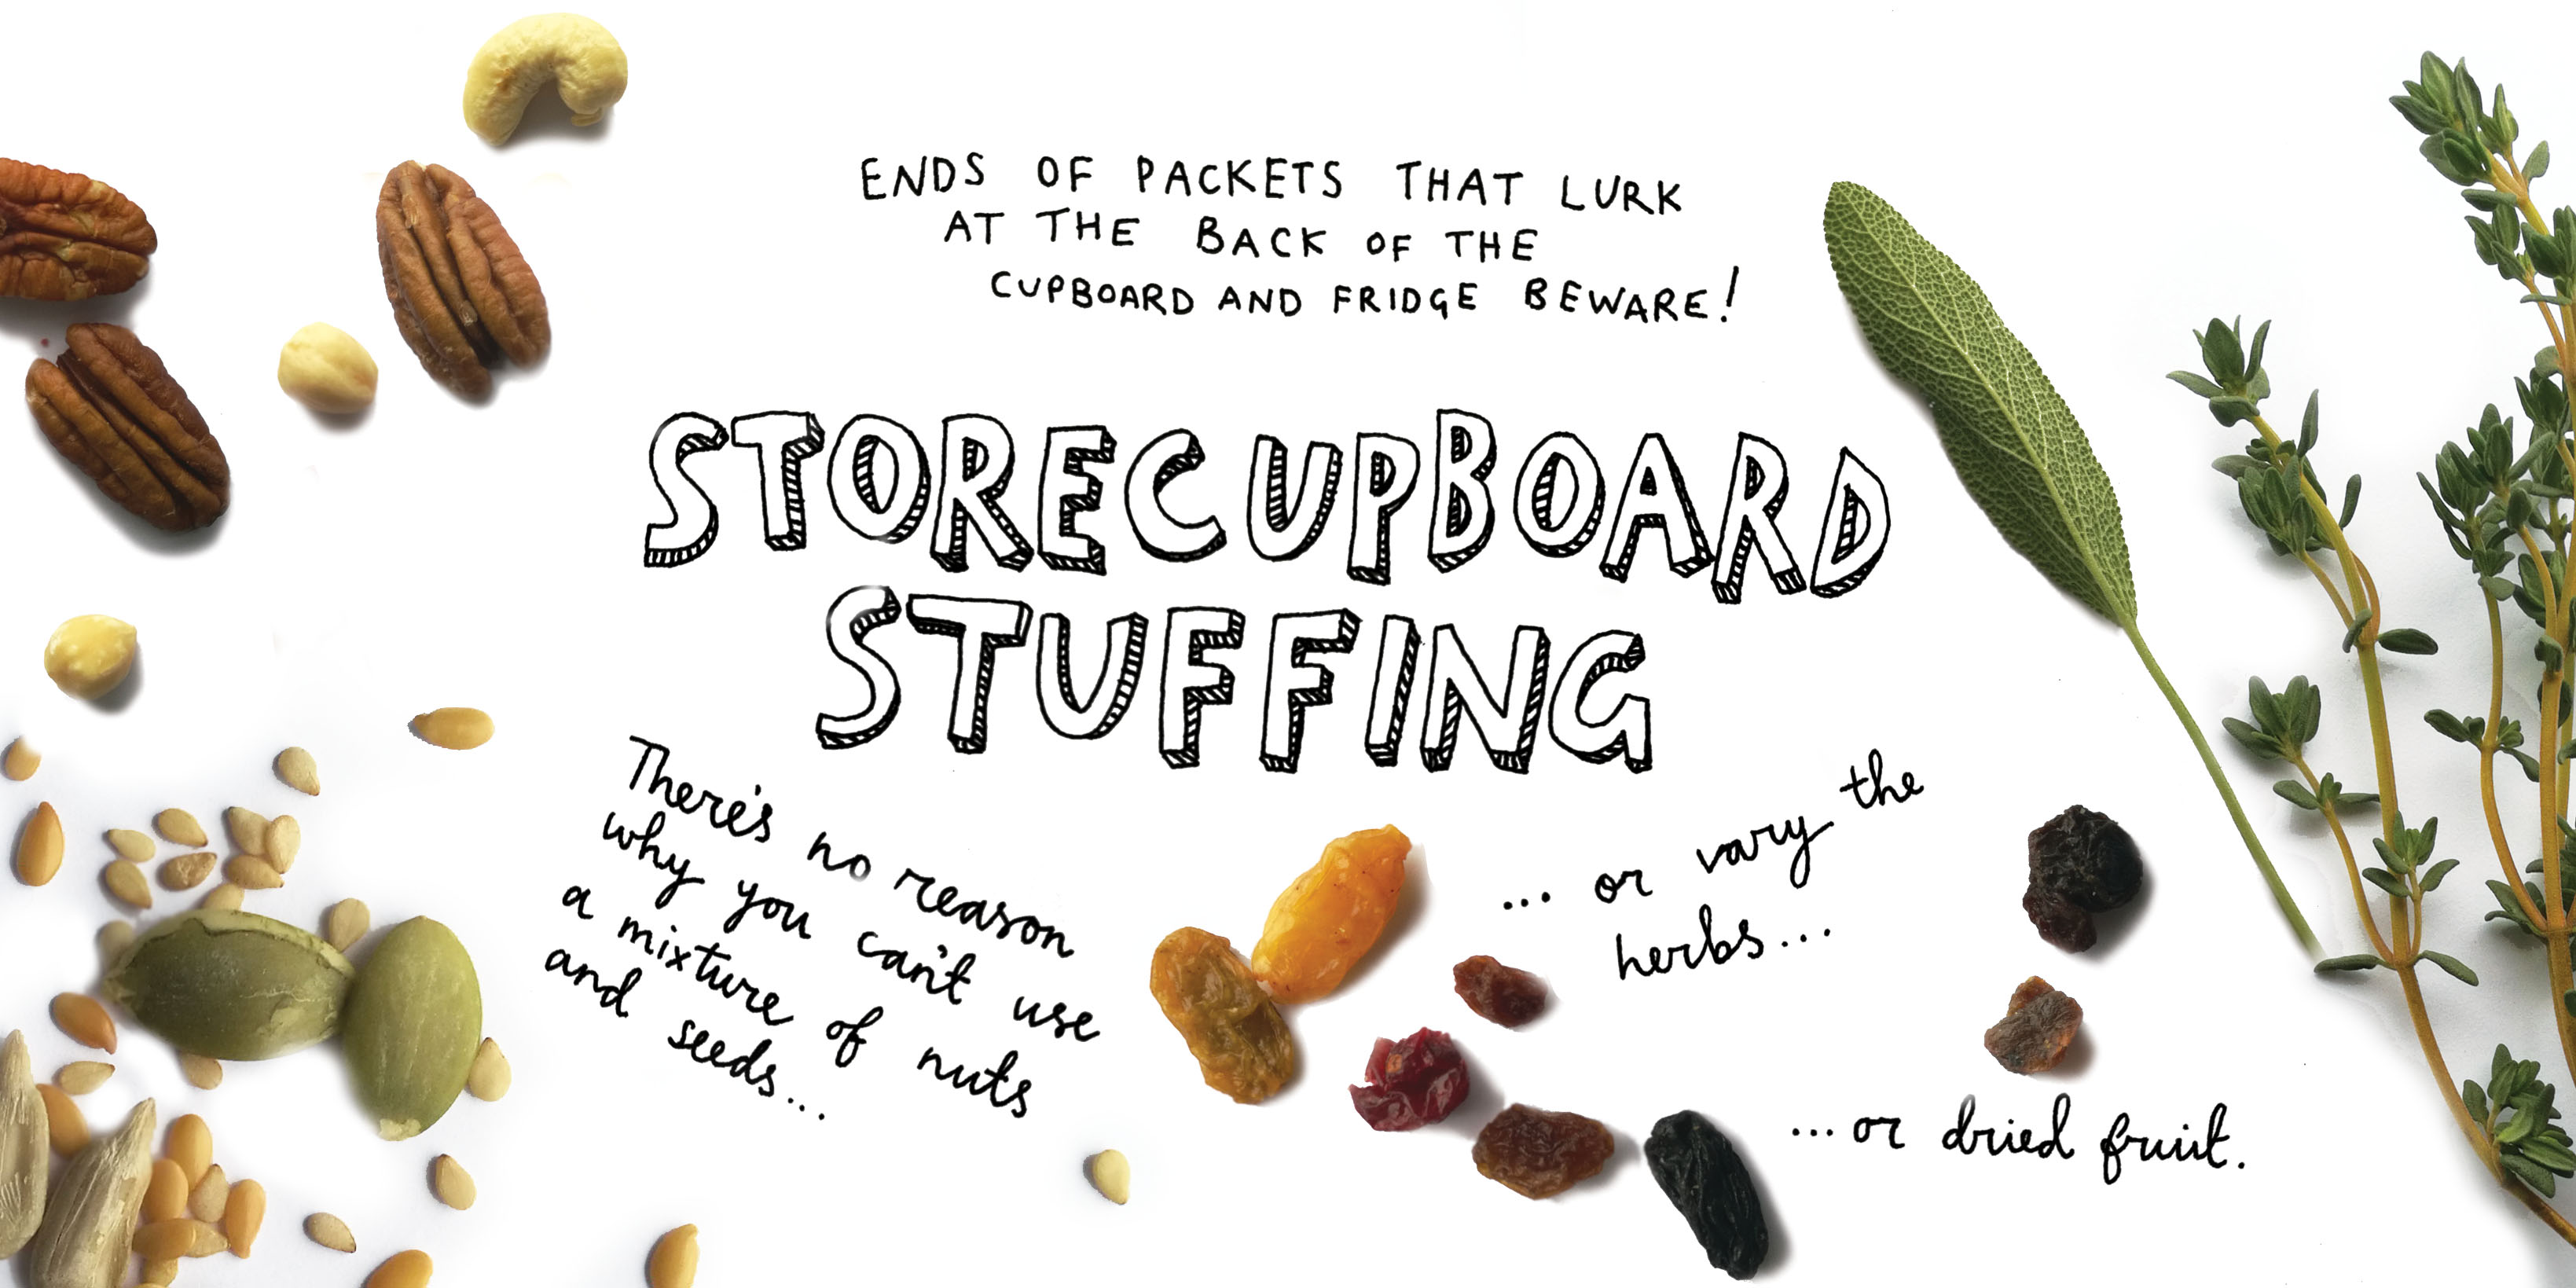 ENDS OF PACKETS THAT LURK
AT THE BACK OF THE
CUPBOARD AND FRIDGE BEWARE!
STORECUPBOARD
STUFFING
There's no reason
why you can't use
a mixture of nuts
and seeds...
... or vary the
herbs...
...or dried fruit.